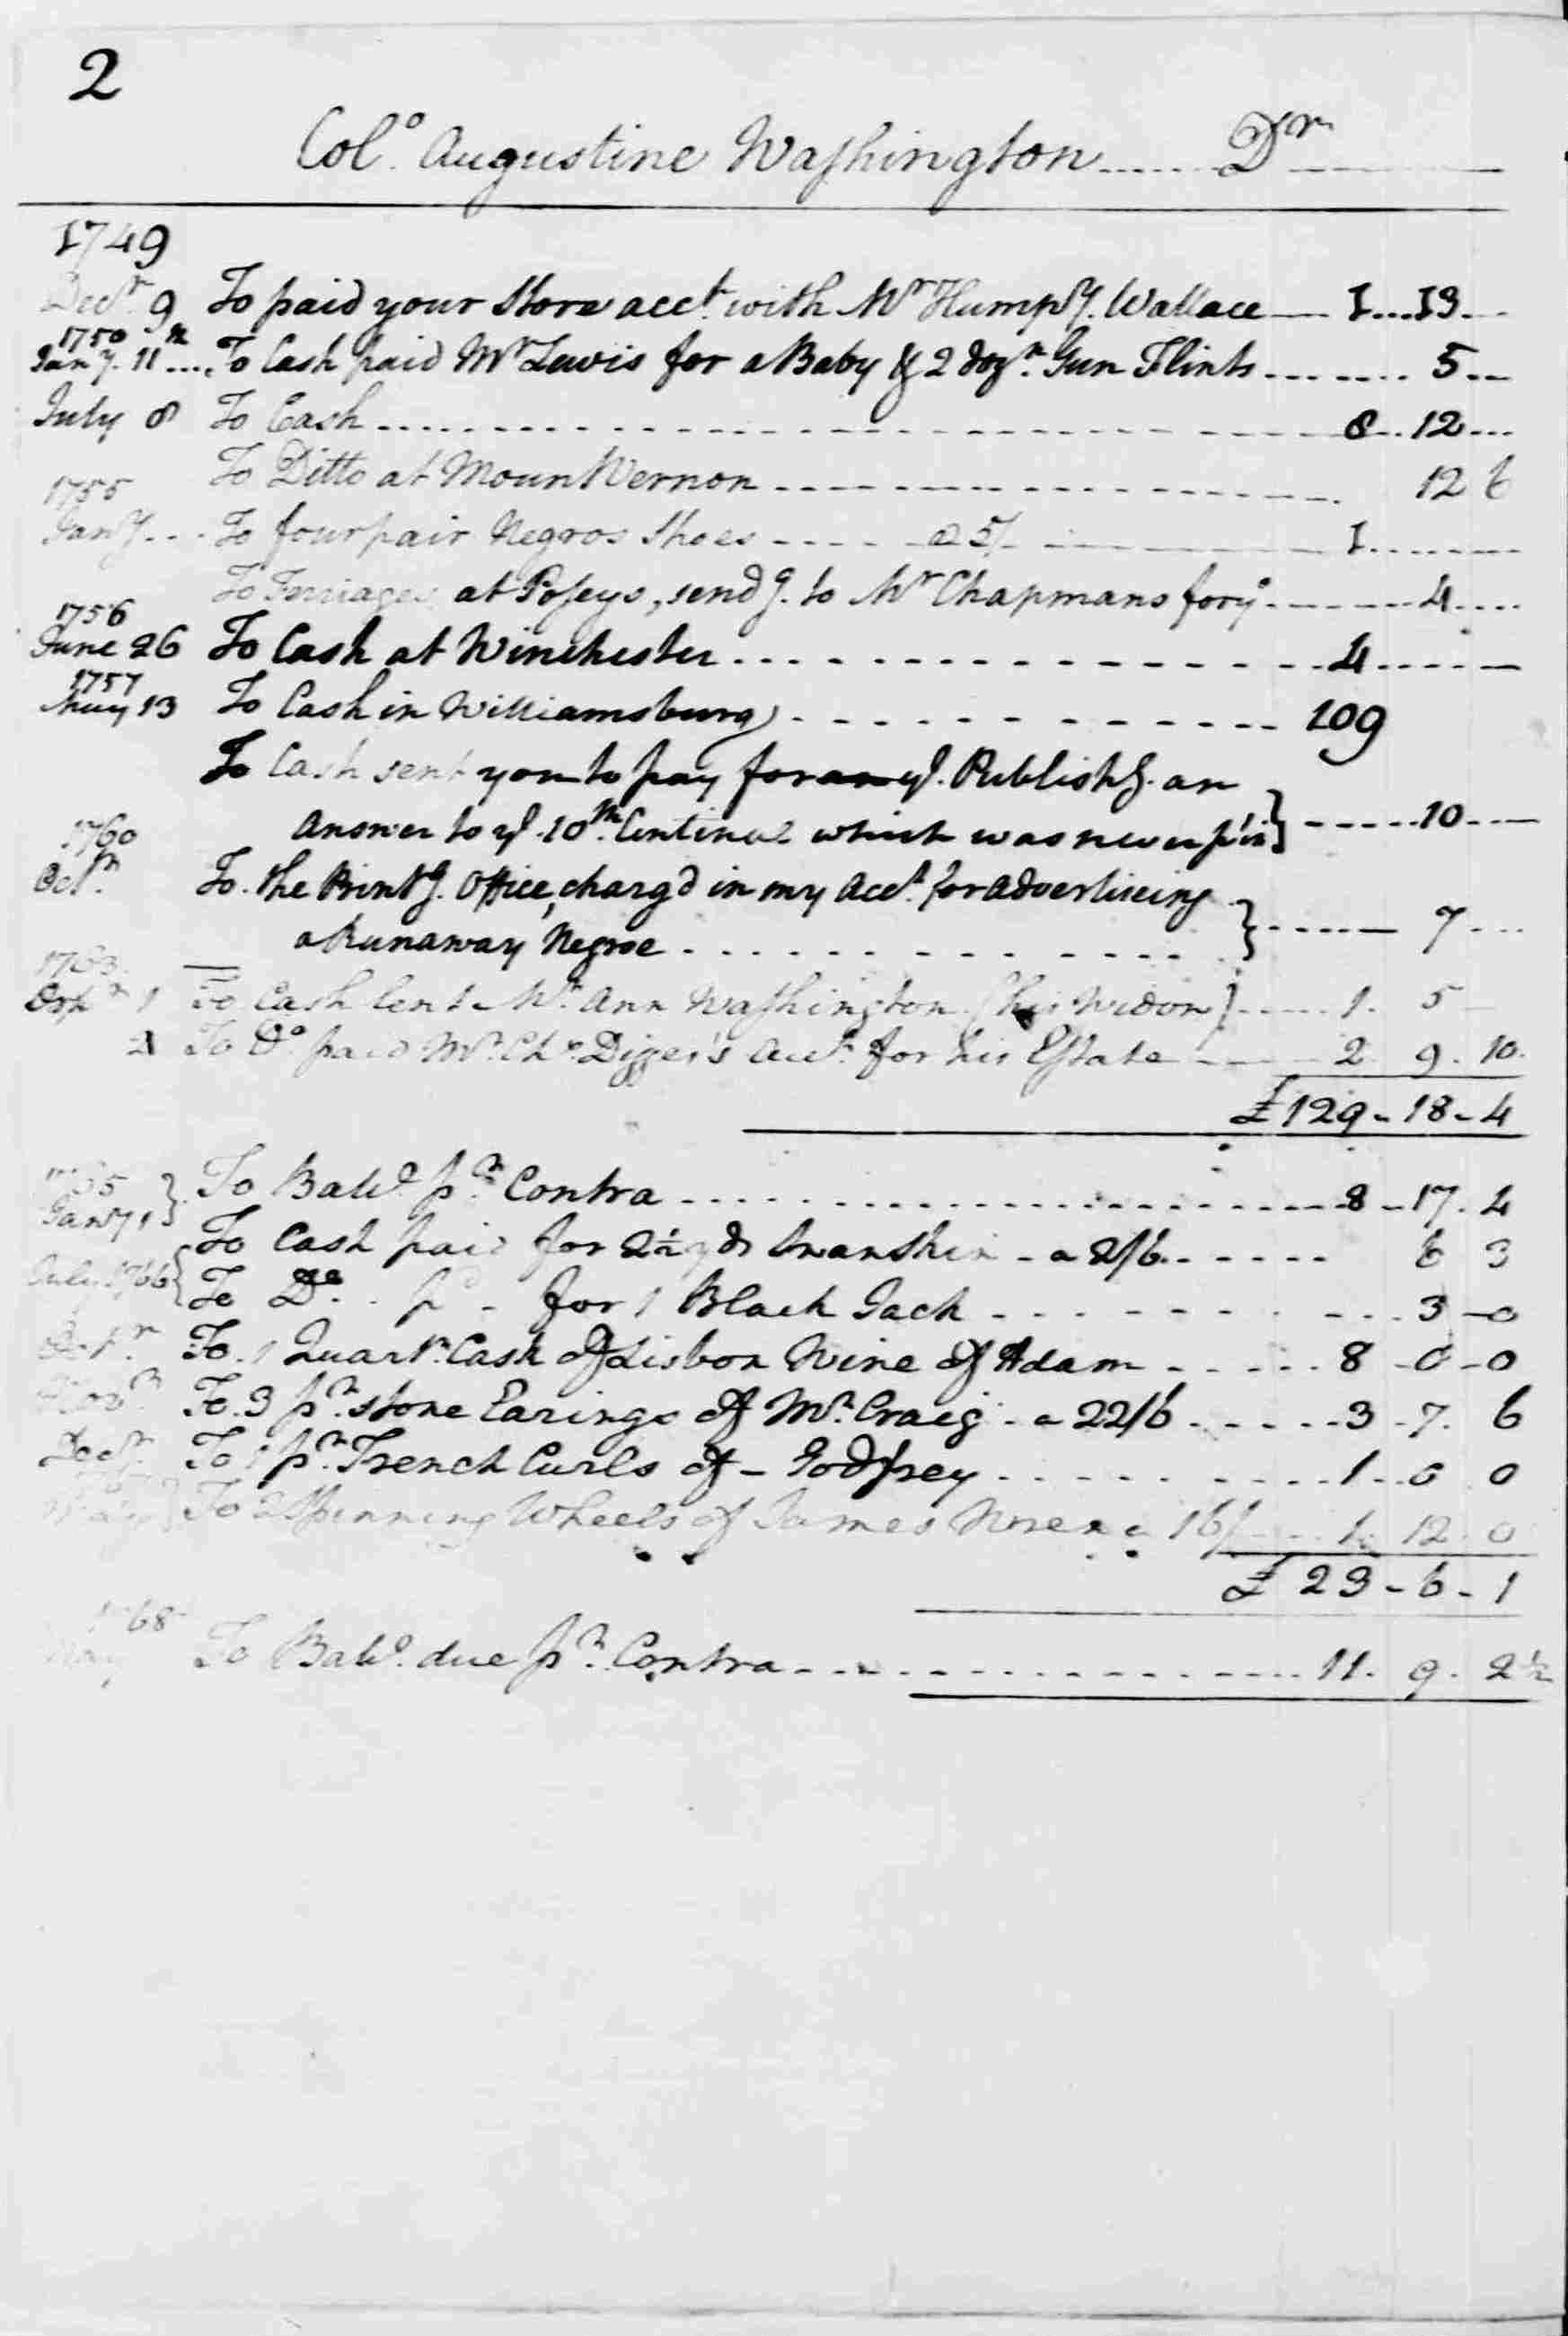 2
Colo. Augustine Washington....... Dr
1749
Decr. 9 To paid your Store acct. with Mr Humpy. Wallace 1....13
1750
Jany. 11th .... To Cash paid Mr Lewis for a Baby & 2 dozn. Gun Flints........ 5
July 8 To Cash ........ 8..12...
To Ditto at Mount Vernon ........ 12 6
1755
Jany... To four pair Negros Shoes ---- @ 5/ 1.......
To Ferriages at Poseys, sendg. to Mr Chapmans for yo. ........ 4....
1756
June 26 To Cash at Winchester ........ 4
1757
May 13 To Cash in Williamsburg ........ 109
To Cash sent you to pay for ye. Publishg. an
Answer to ye. 10th. Centinel which was never } ........ 10
1760
Octr. To the Printg. Office, charg'd in my Acct. for Advertising
a Runaway Negroe ........ } ........ 7
1763
1 To Cash lent Mrs. Ann Washington (his Widow) ...... 1. 5
To Do. paid Mr. Digges's Acct. for his Estate 2 9. 10.
£129-18-4
1765
Jany 1 } To Balle. pr. Contra ........ 8-17. 4
To Cash paid for 2½ yds Swanskin - a 2/6 ...... 6 3
July 1766 { To Do. pd - for 1 Black Jack ........ 3-0
To 1 Quartr. Cask of Lisbon Wine of Adam ...... 8-0-0
Novr. To 3 pr. stone Earings of Mr. Craeg - a 22/6 ...... 3-7. 6
Decr. To 1 pr. French Curls of - Godfrey ........ 1..0 0
To 2 Spinning Wheels of James a 16/ 1. 12. 0
£ 23-6-1
1768
May To Balle. due pr. Contra ........ 11. 9. 2½